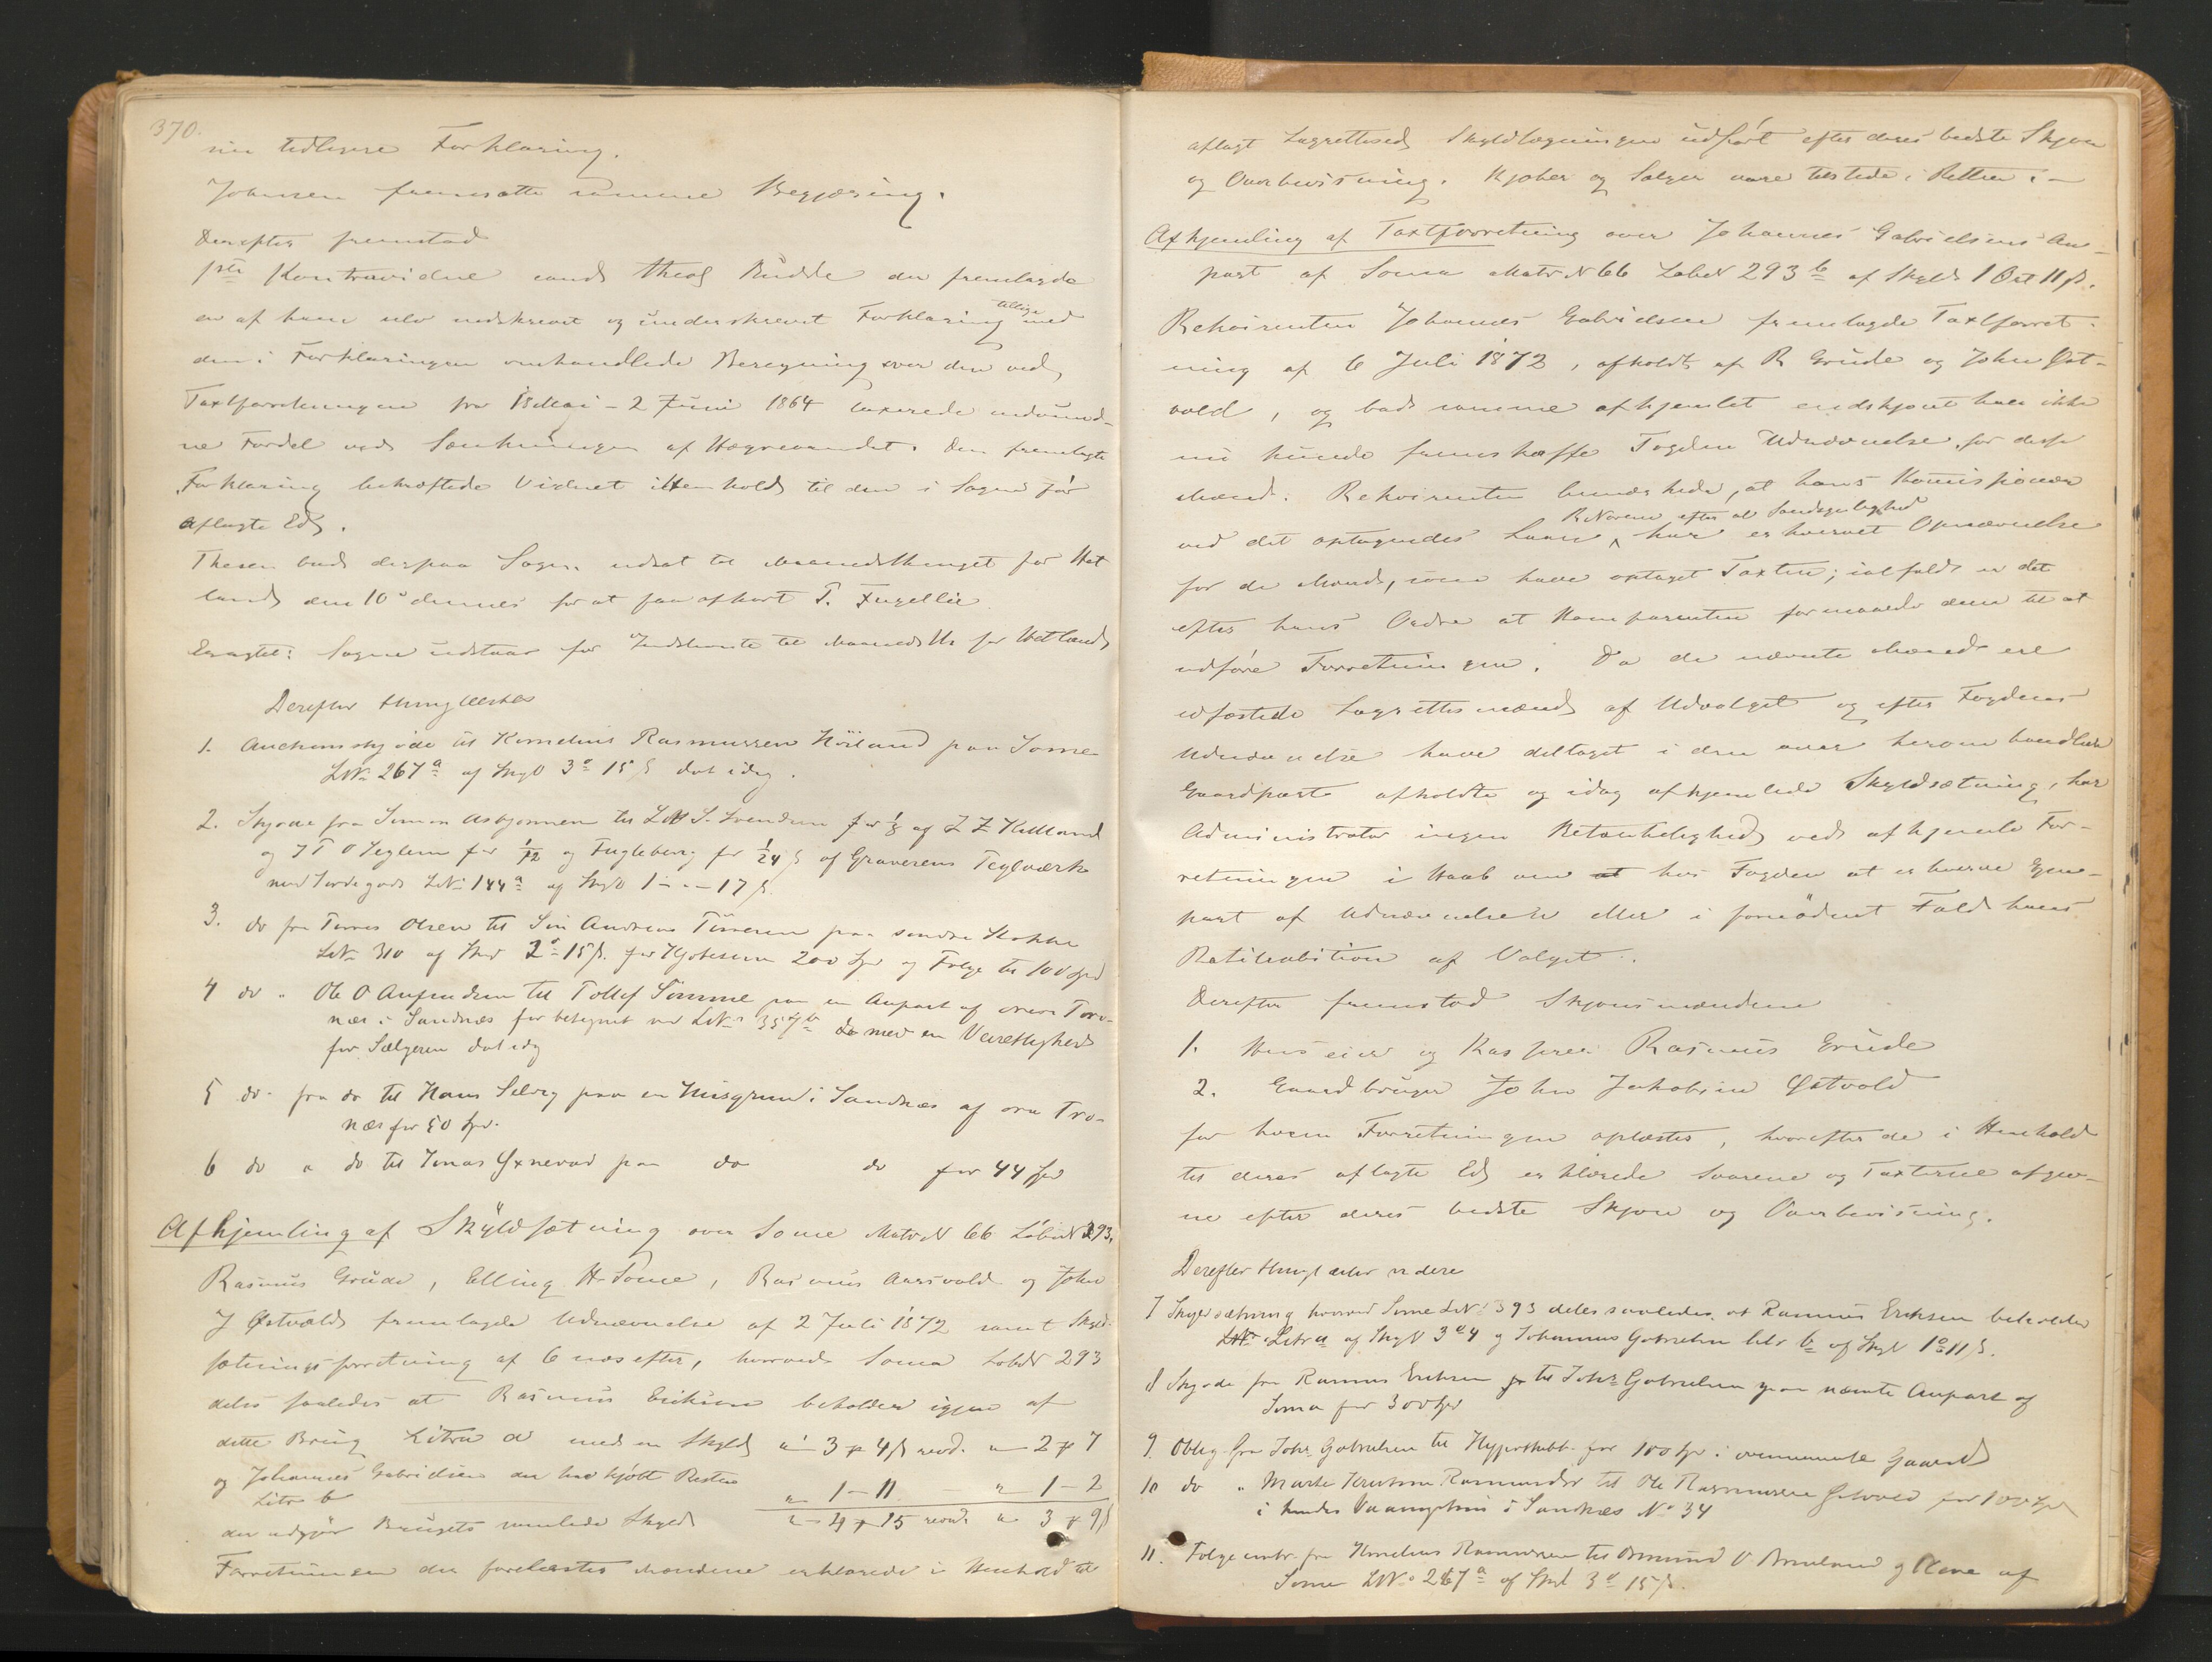 370.
sin tidligere Forklaring.
Johnsen fremsatte samme Begjæring.
Derefter fremstod
1ste Kontravidne cand. theol Budde der fremlagde
en af ham selv nedskrevet og underskrevet Forklaring tillige med
den i Forklaringen omhandlede Beregning over den ved
Taxtforretningen fra 18 Mai - 2 Juni 1864 taxerede indvund-
ne Fordel ved Sænkningen af Hægrevandet. Den fremlagte
Forklaring bekræftede Vidnet i Henhold til den i Sagen før
aflagte Ed.
Thesen bad derpaa Sagen udsat til Maanedsthinget for Het
land den 10de dennes for at faa afhørt T. Fugellie
Eragtet: Sagen udstaar for Indstevnte til Maaneds Th. for Hetland
Derefter thinglæstes
1. Auctionsskjøde til Kornelius Rasmussen Hörland paa Some
LNo 267a af Skyld 3o 15 ß dat idag.
2. Skjøde fra Simon Asbjørnsen til L S. Svendsen for 1/8 og Z Z Kielland
og J T O Seglem for 1/12 og Fugleberg for 1/24 ß af Graverens Teglværk
med Jordegods LNo 144a af Skyld 1 - " - 17 ß.
3. do fra Tørres Olsen til Søn Andreas Tørresen paa søndre Hokke
LNo 310 af Skyld 2o 15ß. for Kjøbesum 200 Spd og Folge til 100 Spd
4 do " Ole O Aufindsen til Tollef Somme paa en Anpart af øvre Tro-
næs i Sandnæs før betegnet ved LNo 357b do med en Veirettighed
for Sælgeren dat idag
5 do. fra do til Hans Selvig paa en Husgrund i Sandnæs af øvre Tro-
næs for 50 Spd.
6 do " do til Jonas Øxnevad paa do do for 44 Spd
Afhjemling af Skyldsætning over Some Matr N 66 LøbeN 293.
Rasmus Grude, Elling H Some, Rasmus Aarsvold og John
J Østvold fremlagde Udnævnelse af 2 Juli 1872 samt Skyld-
sætningsforretning af 6 næstefter, hvorved Soma LøbN 293
deles saaledes at Rasmus Eriksen beholder igjen af
dette Brug Litra a med en Skyld " 3 " 4 ß revd. " 2 " 7
og Johannes Gabrielsen der har kjøbt Resten
Litr b " 1 - 11 " 1 - 2
der udgjør Brugets samlede Skyld " 4 " 15 revd. " 3 " 9 ß
Forretningen der forelæstes Mændene erklærede i Henhold til
aflagt Lagrettesed Skyldlægningen udført efter deres bedste Skjøn
og Overbevisning. Kjøber og Sælger vare tilstede i Retten. -
Afhjemling af Taxtforretning over Johannes Gabrielsens An-
part af Soma Matr N 66 LøbeN 293b af Skyld 1 Ort 11 ß.
Rekvirenten Johannes Gabrielsen fremlagde Taxtforret-
ning af 6 Juli 1872, afholdt af R Grude og John Øst-
vold, og bad samme afhjemlet endskjønt han ikke
nu kunde fremskaffe Fogdens Udnævnelse for disse
Mænd. Rekvirenten bemærkede, at hans Komissionær
R Norem efter al Sandsynlighed
ved det optagendes Laan, har erhvervet Opnævnelse
for de Mænd, som have optaget Taxten; ialfald er det
efter hans Ordre at Komparenten formaaede dem til at
udføre Forretningen. Da de nævnte Mænd ere
edfæstede Lagrettesmænd af Udvalget og efter Fogdens
Udnævnelse have deltaget i den over herom handlede
Gaardpart afholdte og idag afhjemlede Skyldsætning, har
Administrator ingen Betænkelighed ved afhjemle For-
retningen i Haab om at hos Fogden at erhverve Gjen-
part af Udnævnelsen eller i fornödent Fald hans
Ratihabition af Valget.
Derefter fremstod Skjønsmændene
1. Huseier og Kasserer Rasmus Grude
2. Gaardbruger John Jakobsen Østvold
for hvem Forretningen oplæstes, hvorefter de i Henhold
til deres aflagte Ed erklærede Svarene og Taxterne afgiv-
ne efter deres bedste Skjøn og Overbevisning.
Derefter thinglæstes videre
7 Skyldsætning hvorved Some LNo 393 deles saaledes, at Rasmus Eriksen beholder
Litra a af Skyld 3o 4 og Johannes Gabrielsen litr b af Skyld 1o 11 ß.
8 Skjøde fra Rasmus Eriksen til Johs Gabrielsen paa nævnte Anpart af
Soma for 300 Spd
9. Oblig. fra Johs Gabrielsen til Hypothekb. for 100 Spd i ovennævnte Gaard
10 do " Marte Knutsen Rasmusdr til Ole Rasmussen Østvold for 100 Spd
i hendes Vaaningshus i Sandnæs No 34
11. Folgecontr. fra Kornelius Rasmussen til Osmund O Auland og Kone af
Some LNo 267a af Skyld 3o 15 ß.